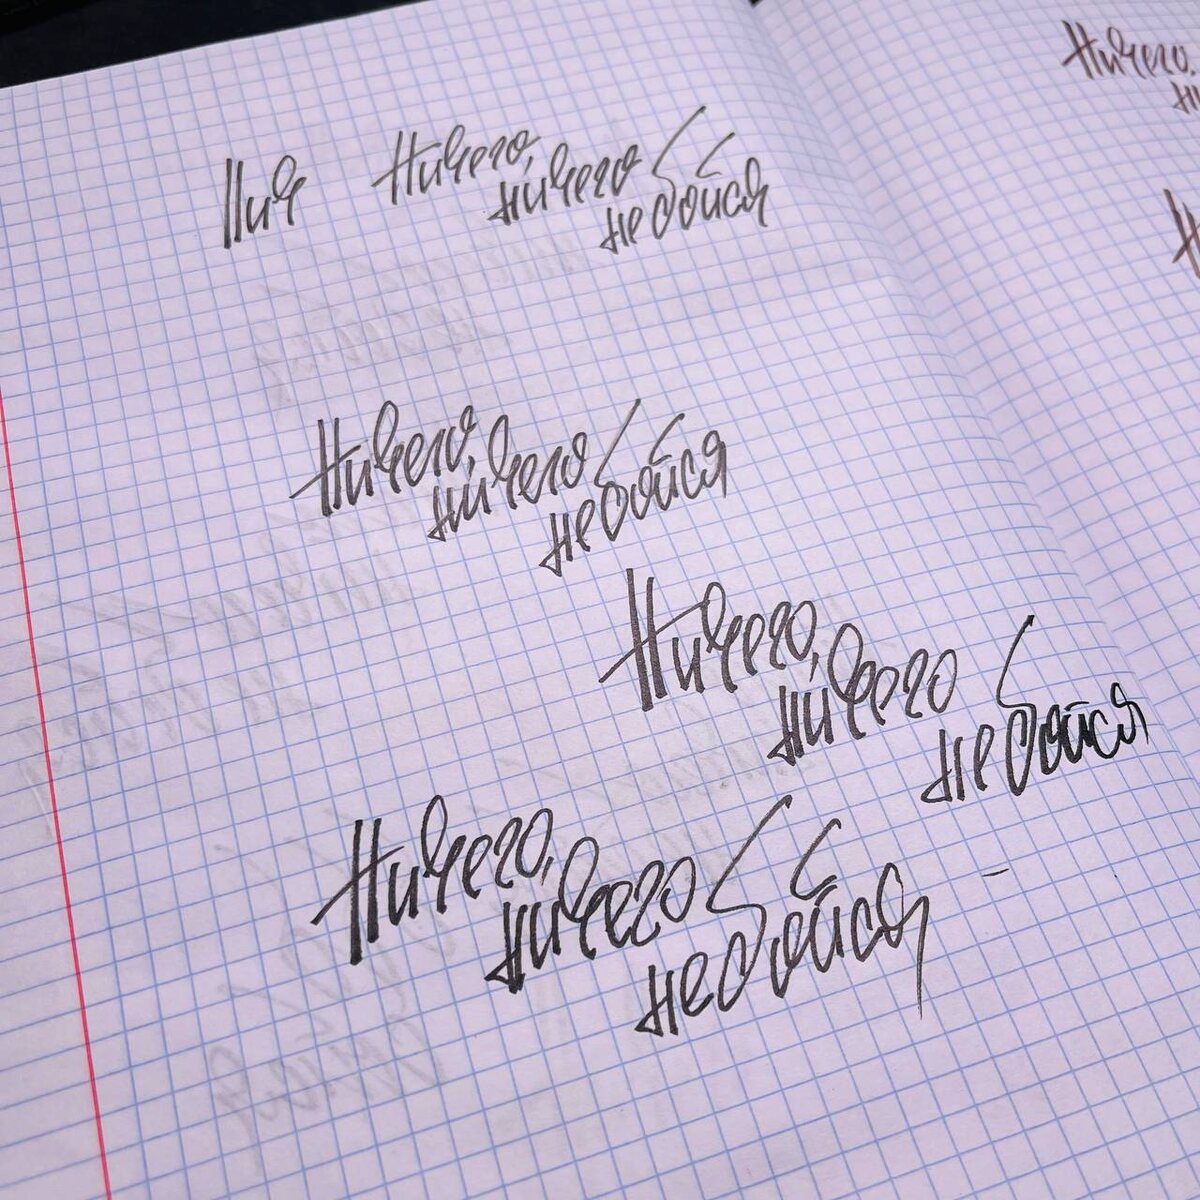 Нич
Ничего,
ничего
не бойся
Ничего,
ничего
не бойся
Ничего,
ничего
не бойся
Ничего,
ничего
не бойся
Ничего,